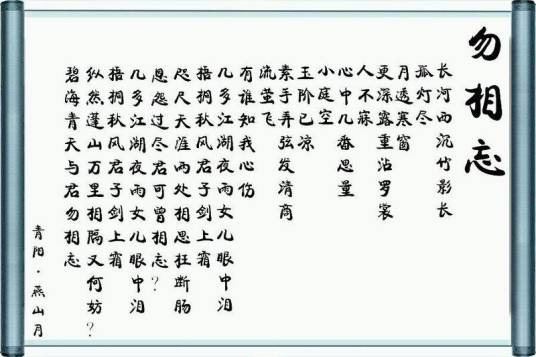 勿相忘
长河西沉竹影长
孤灯尽
月透寒窗
更深露重沾罗裳
人不寐
心中几番思量
小庭空
玉阶已凉
素手弄弦发清商
流萤飞
有谁知我心伤
几多江湖夜雨女儿眼中泪
梧桐秋风君子剑上霜
咫尺天涯两处相思枉断肠
恩怨过尽君可曾相忘？
几多江湖夜雨女儿眼中泪
梧桐秋风君子剑上霜
纵然蓬山万里相隔又何妨？
碧海青天与君勿相忘
青阳·燕山月